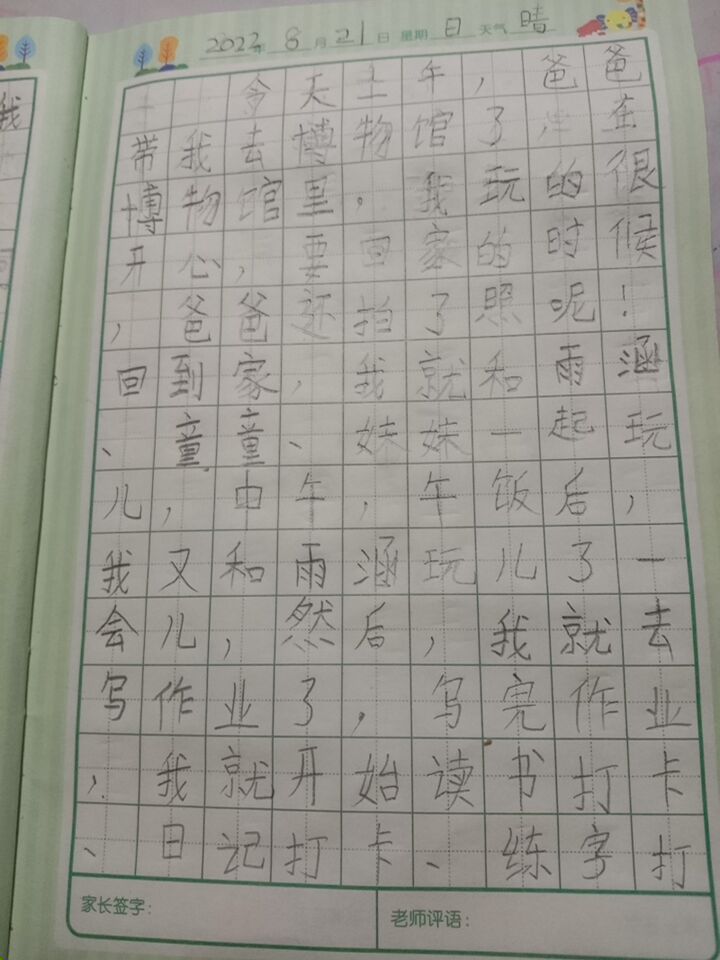 2022年 8月21日 星期日 天气晴
今天上午，爸爸
带我去博物馆了，在
博物馆里，我玩的很
开心，要回家的时候
，爸爸还拍了照呢！
回到家，我就和雨涵
、童童、妹妹一起玩
儿，中午，午饭后，
我又和雨涵玩儿了一
会儿，然后，我就去
写作业了，写完作业
，我就开始读书打卡
、日记打卡、练字打
家长签字：
老师评语：
我